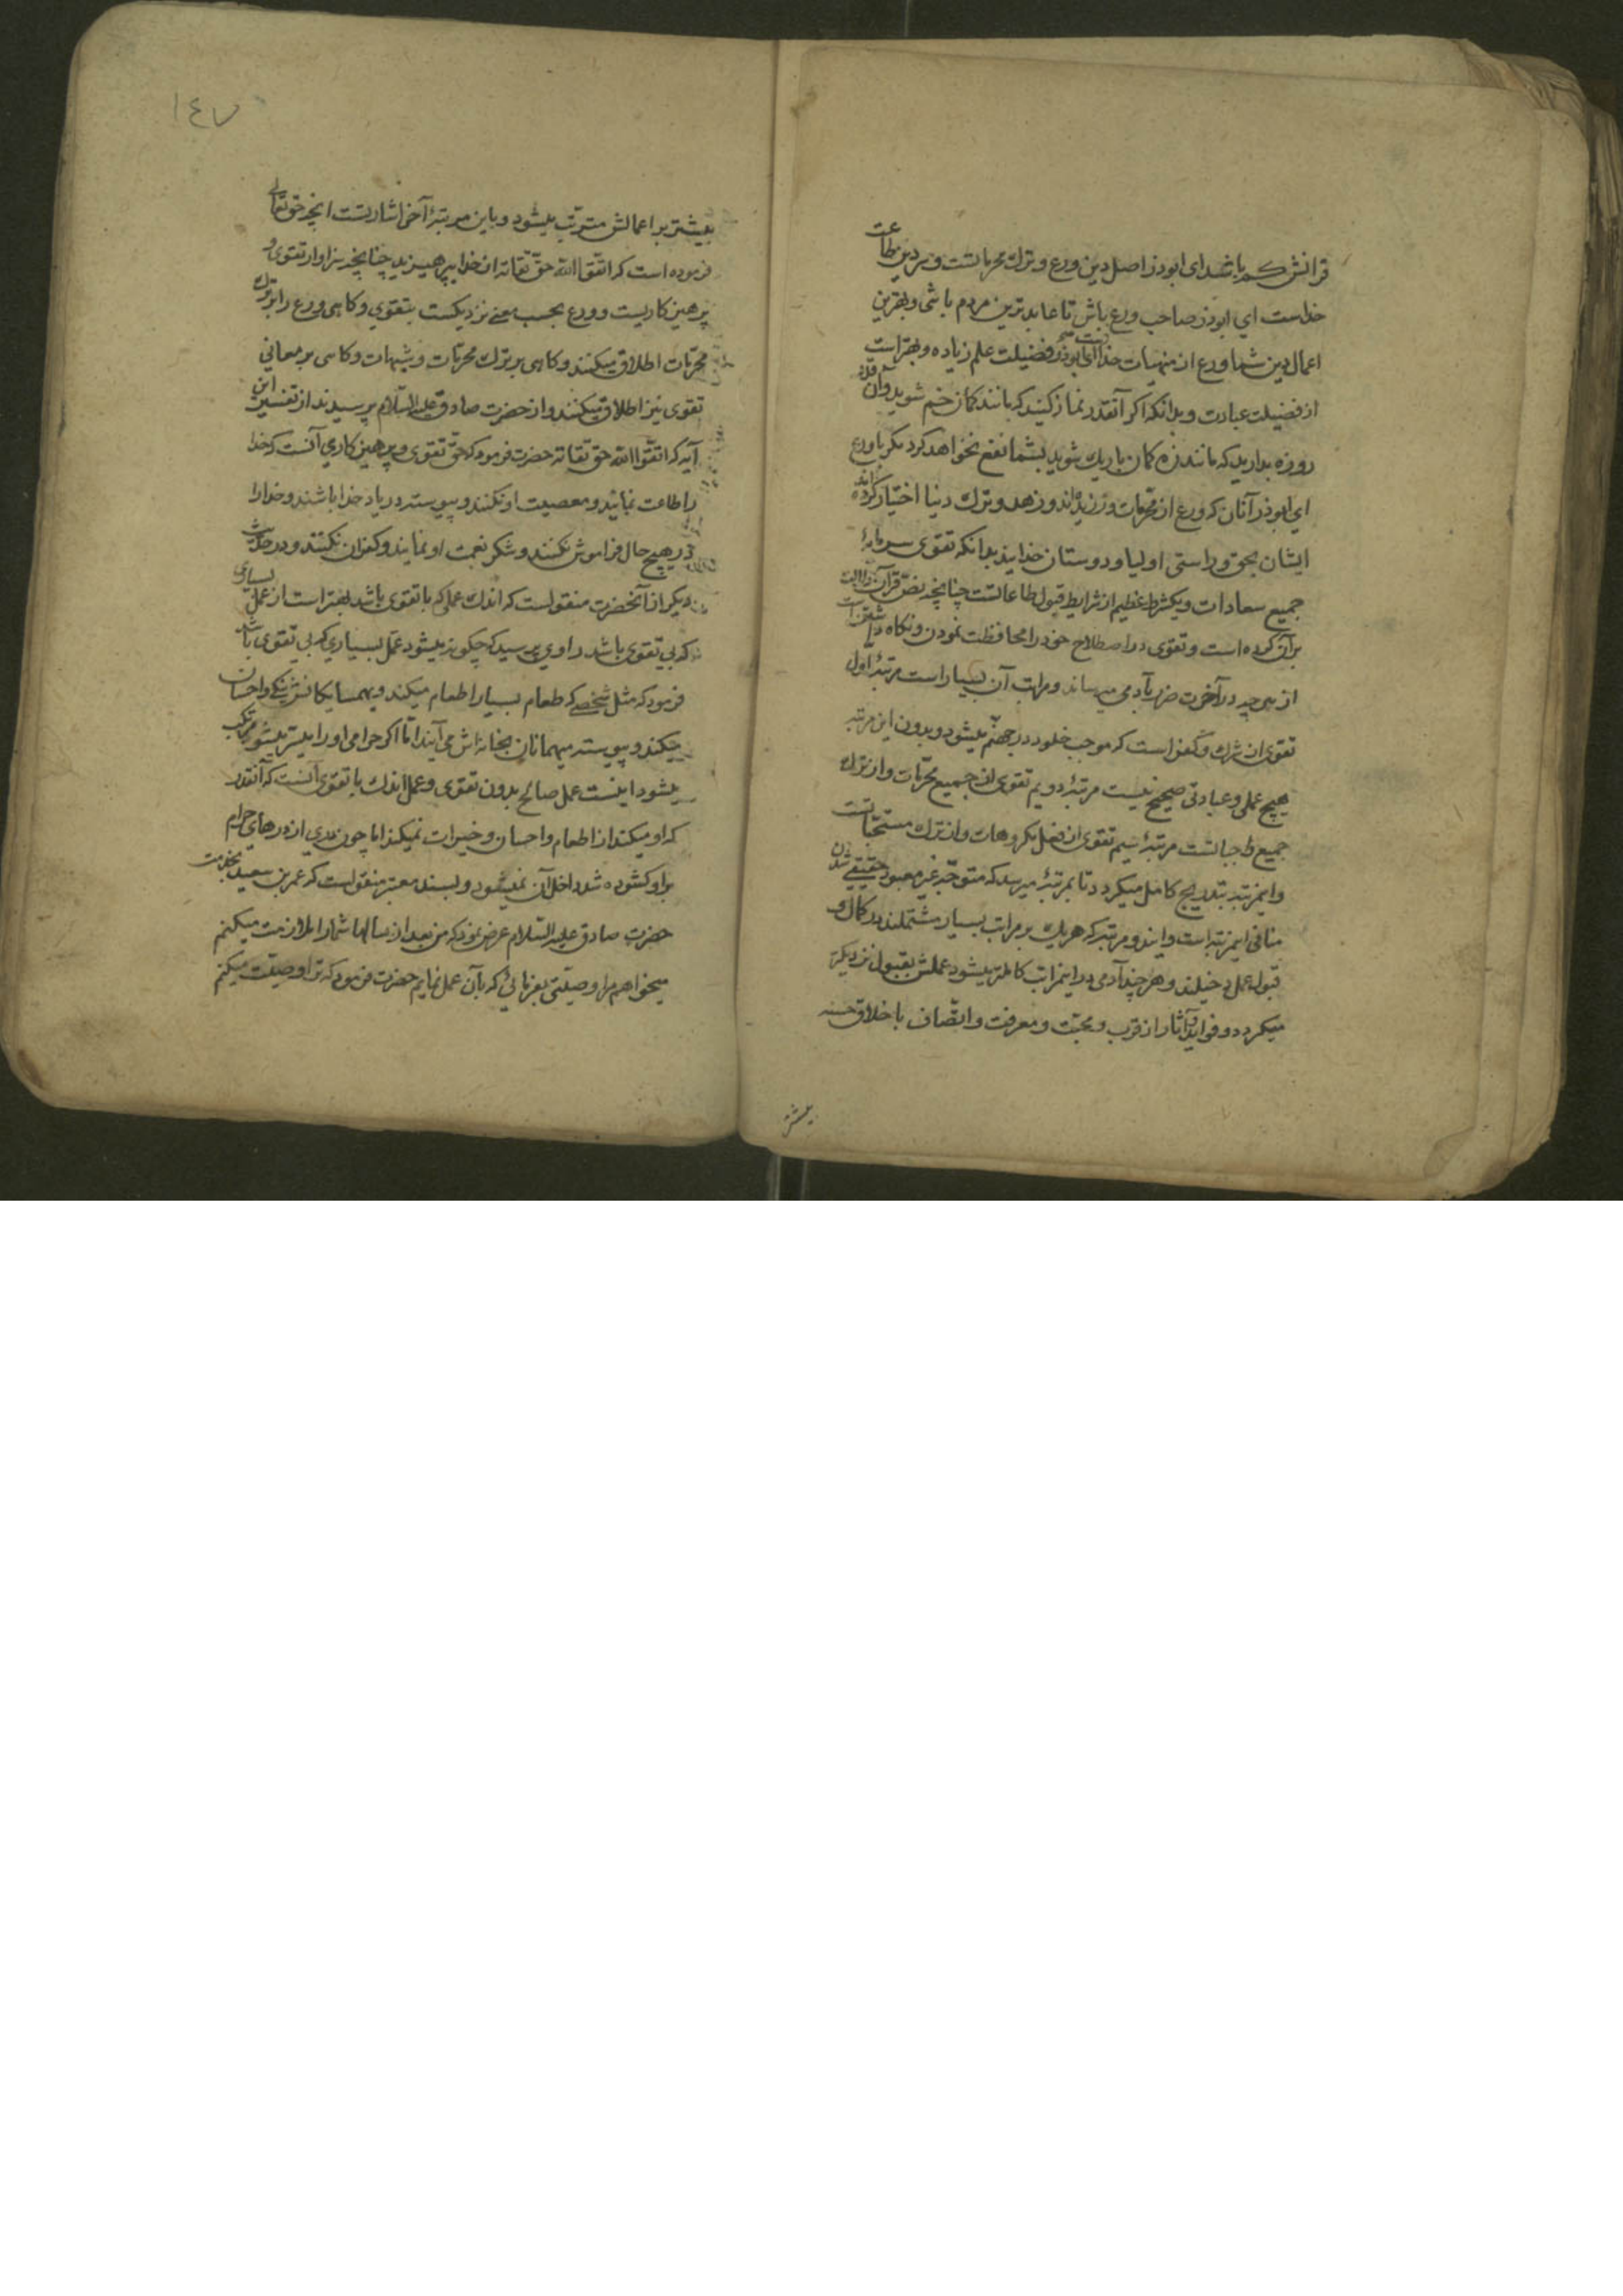 قرانش کم باشد ای ابوذر اصل دین ورع و ترك محرماتست و سر دین طاعت
خداست ای ابوذر صاحب ورع باش تا عابدترین مردم باشی و بهترین
اعمال دین شما ورع از منهیات خداست ای ابوذر فضیلت علم زیاده و بهتر است
از فضیلت عبادت و بدانکه اکر آنقدر نماز کنید که مانند کمان خم شوید و آن قدر
روزه بدارید که مانند زه کمان باریك شوید بشما نفع نخواهد کرد مکر با ورع
ای ابوذر آنان که ورع از محرمات ورزیده اند و زهد و ترك دنیا اختیار کرده اند
ایشان بحق و راستی اولیا و دوستان خدایند بدانکه تقوی سرمایهٔ
جمیع سعادات و یکشرط عظیم از شرایط قبول طاعاتست چنانچه نص قرآن دلالت
برآن کرده است و تقوی در اصطلاح خود را محافظت نمودن و نکاه داشتن است
از هر چه در آخرت ضرر بآدمی میرساند و مراتب آن بسیار است مرتبهٔ اول
تقوی از شرك و کفر است که موجب خلود در جهنم میشود و بدون این مرتبه
هیچ عملی و عبادتی صحیح نیست مرتبهٔ دویم تقوی از جمیع محرمات و از ترك
جمیع واجباتست مرتبهٔ سیم تقوی از فعل مکروهات و از ترك مستحباتست
و اینمرتبه بتدریج کامل میکردد تا بمرتبهٔ میرسد که متوجه غیر معبود حقیقی شدن
منافی اینمرتبه است و ایندو مرتبه که هریك بر مراتب بسیار مشتملند در کمال و
قبول عمل دخیلند و هر چند آدمی در اینمراتب کاملتر میشود عملش بقبول نزدیکتر
میکردد و فواید و آثار از قرب و محبت و معرفت و اتصاف باخلاق حسنه
بیشتر
١٤٧
بیشتر بر اعمالش مترتب میشود و باین مرتبهٔ آخر اشارتست انچه حق تعالی
فرموده است که اتقوا الله حق تقاته از خدا بپرهیزید چنانچه سزاوار تقوی و
پرهیزکاریست و ورع بحسب معنی نزدیکست بتقوی و کاهی ورع را بر ترك
محرمات اطلاق میکنند و کاهی بر ترك محرمات و شبهات و کاهی بر معانی
تقوی نیز اطلاق میکنند و از حضرت صادق علیه السلام پرسیدند از تفسیر این
آیه که اتقوا الله حق تقاته حضرت فرمود که حق تقوی و پرهیزکاری آنست که خدا
را طاعت نمایند و معصیت او نکنند و پیوسته در یاد خدا باشند و خدا را
در هیچ حال فراموش نکنند و شکر نعمت او نمایند و کفران نکنند و در حدیث
دیکر از آنحضرت منقولست که اندك عملی که با تقوی باشد بهتر است از عمل بسیاری
که بی تقوی باشد راوی پرسید که چکونه میشود عمل بسیاری که بی تقوی باشد
فرمود که مثل شخصی که طعام بسیار اطعام میکند و بهمسایکانش نیکی و احسان
میکند و پیوسته میهمانان بخانه اش می آیند اما اکر حرامی او را میسر میشود مرتکب
میشود اینست عمل صالح بدون تقوی و عمل اندك با تقوی آنست که آنقدر
که او میکند از اطعام و احسان و خیرات نمیکند اما چون دری از درهای حرام
بر او کشوده شد داخل آن نمیشود و بسند معتبر منقولست که عمر بن سعید بخدمت
حضرت صادق علیه السلام عرض نمود که من بعد از سالها شما را ملازمت میکنم
میخواهم مرا وصیتی بفرمائی که بآن عمل نمایم حضرت فرمود که ترا وصیت میکنم